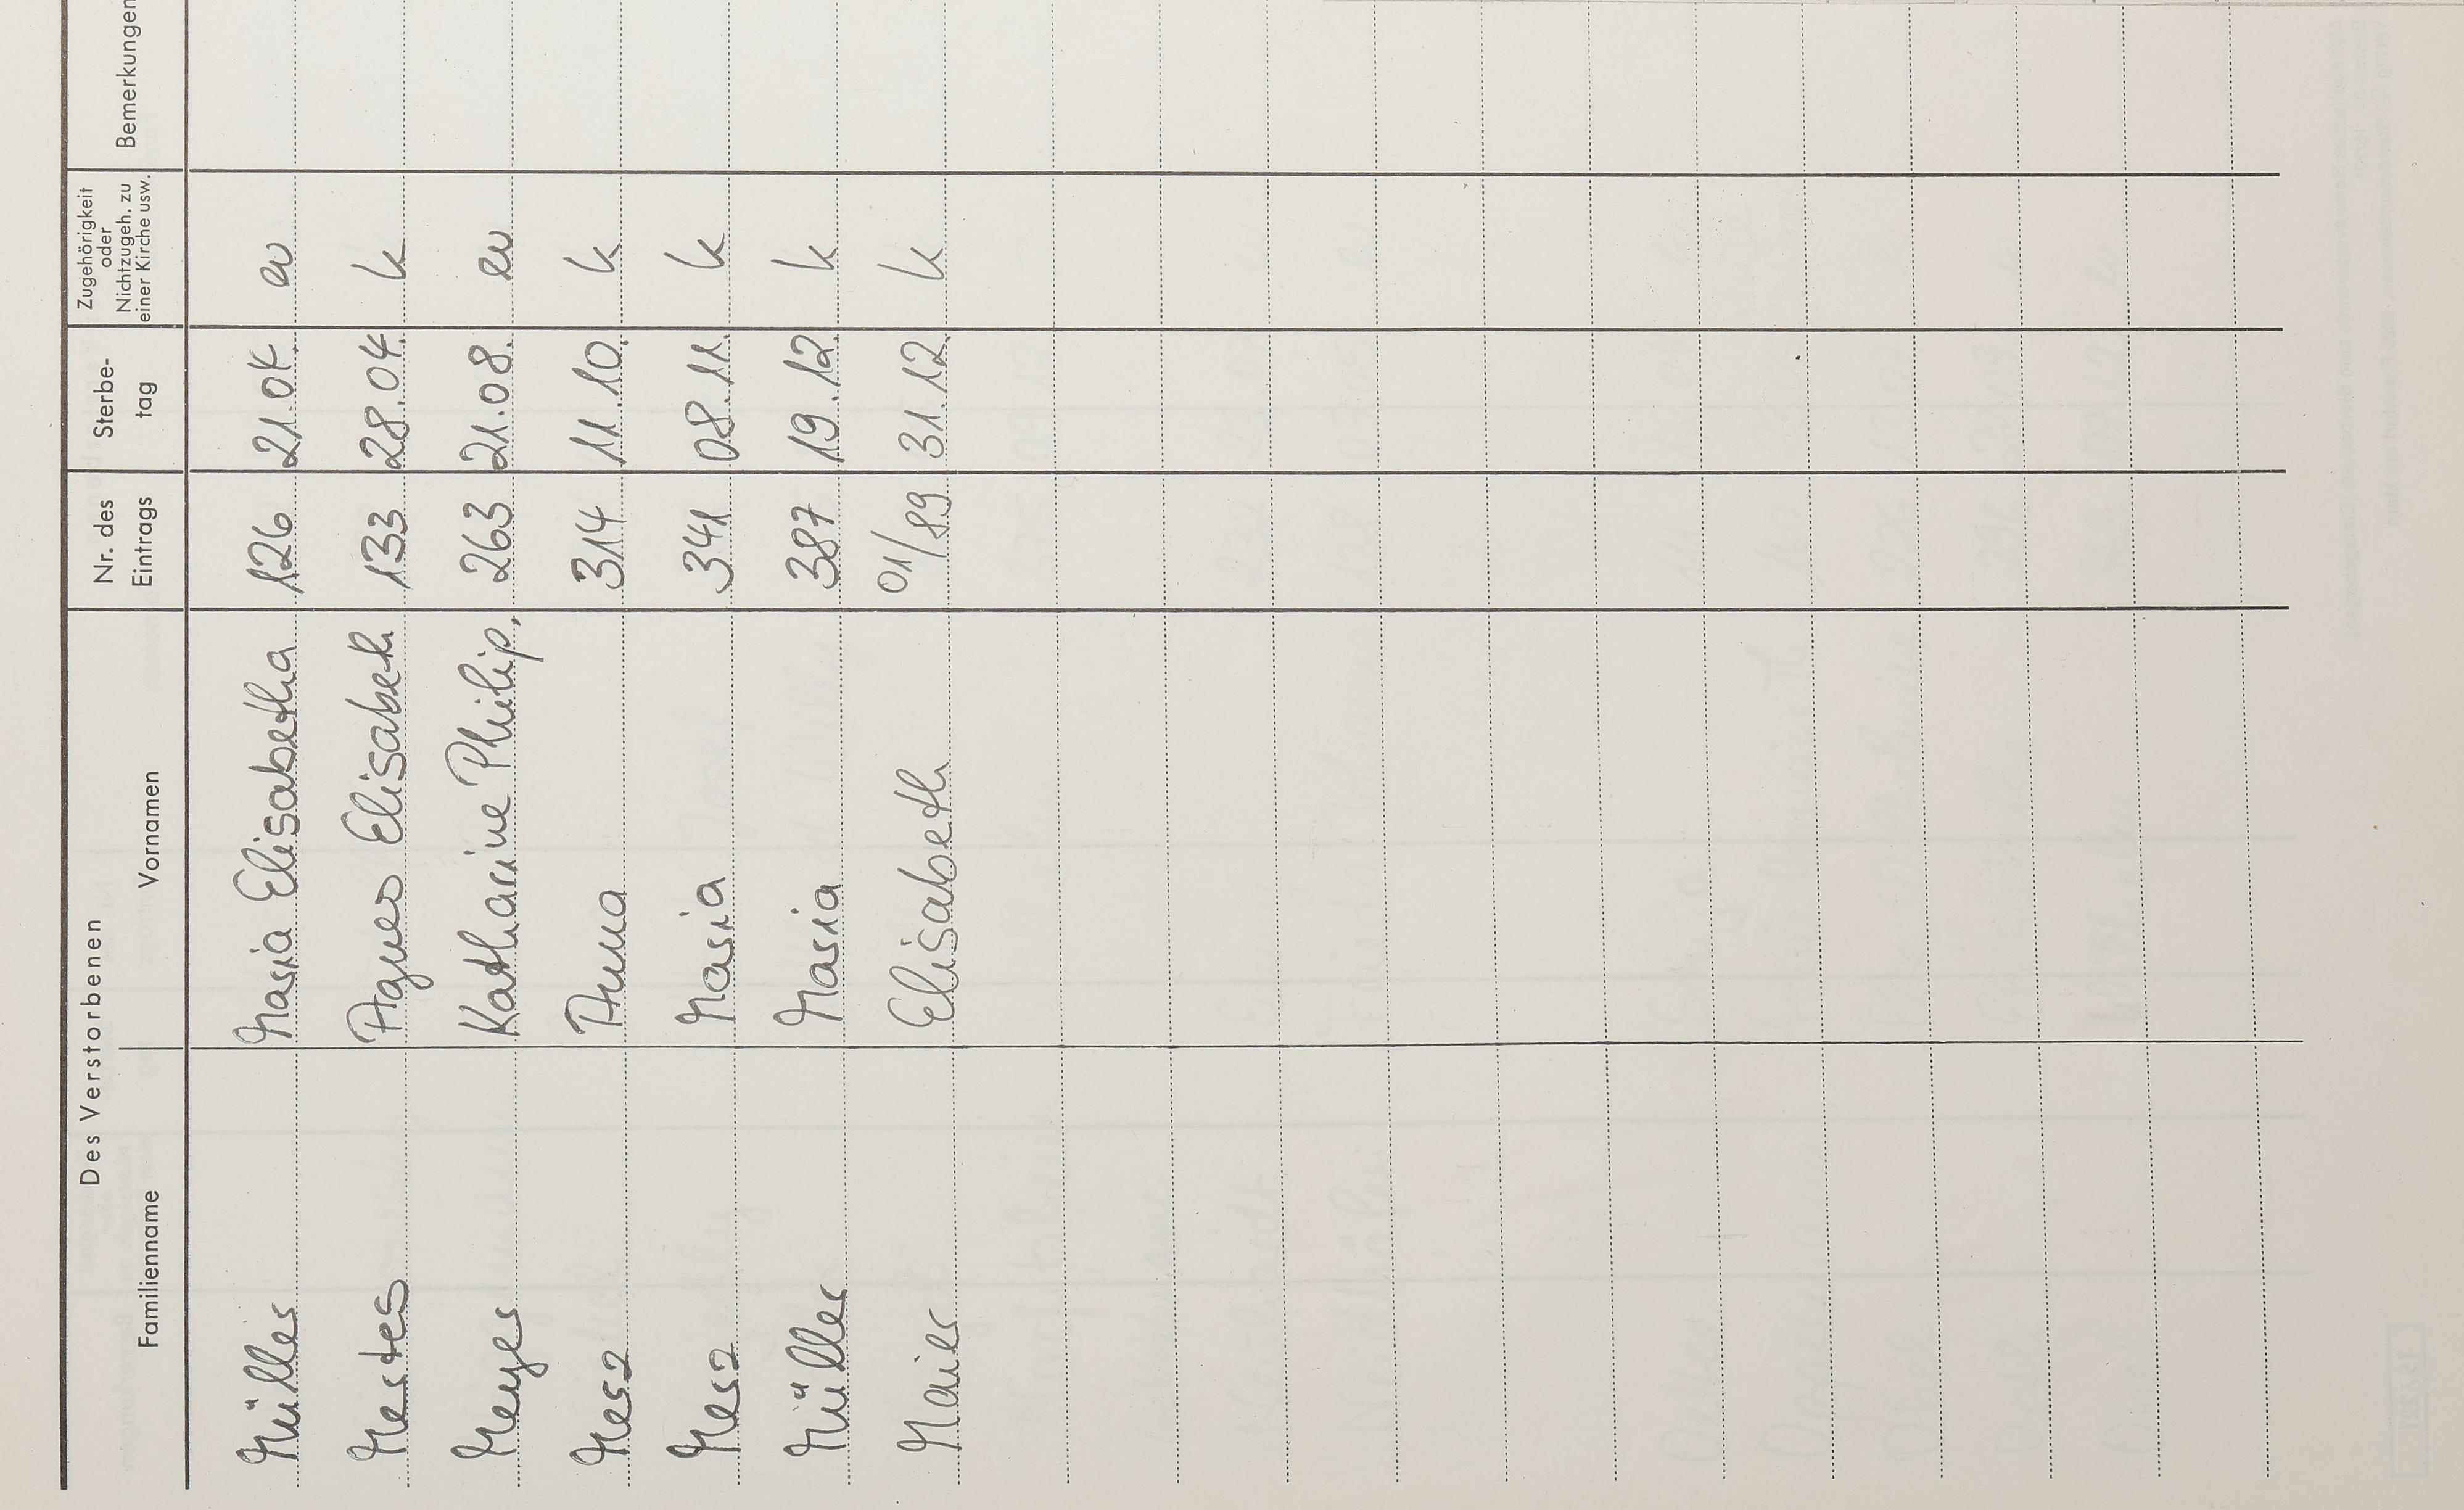 Des Verstorbenen
Familienname Vornamen Nr. des Eintrags Sterbe-tag Zugehörigkeit oder Nichtzugeh. zu einer Kirche usw. Bemerkungen
Müller Maria Elisabetha 126 21.04. ev
Mertes Agnes Elisabeth 133 28.04. k
Meyer Katharine Philip. 263 21.08. ev
Merz Anna 314 11.10. k
Merz Maria 341 08.11. k
Müller Maria 387 19.12. k
Maier Elisabeth 01/89 31.12. k